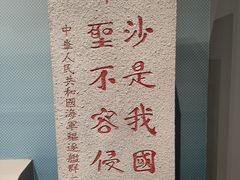 沙是我國
聖不容侵
中華人民共和國海軍驅逐艦群